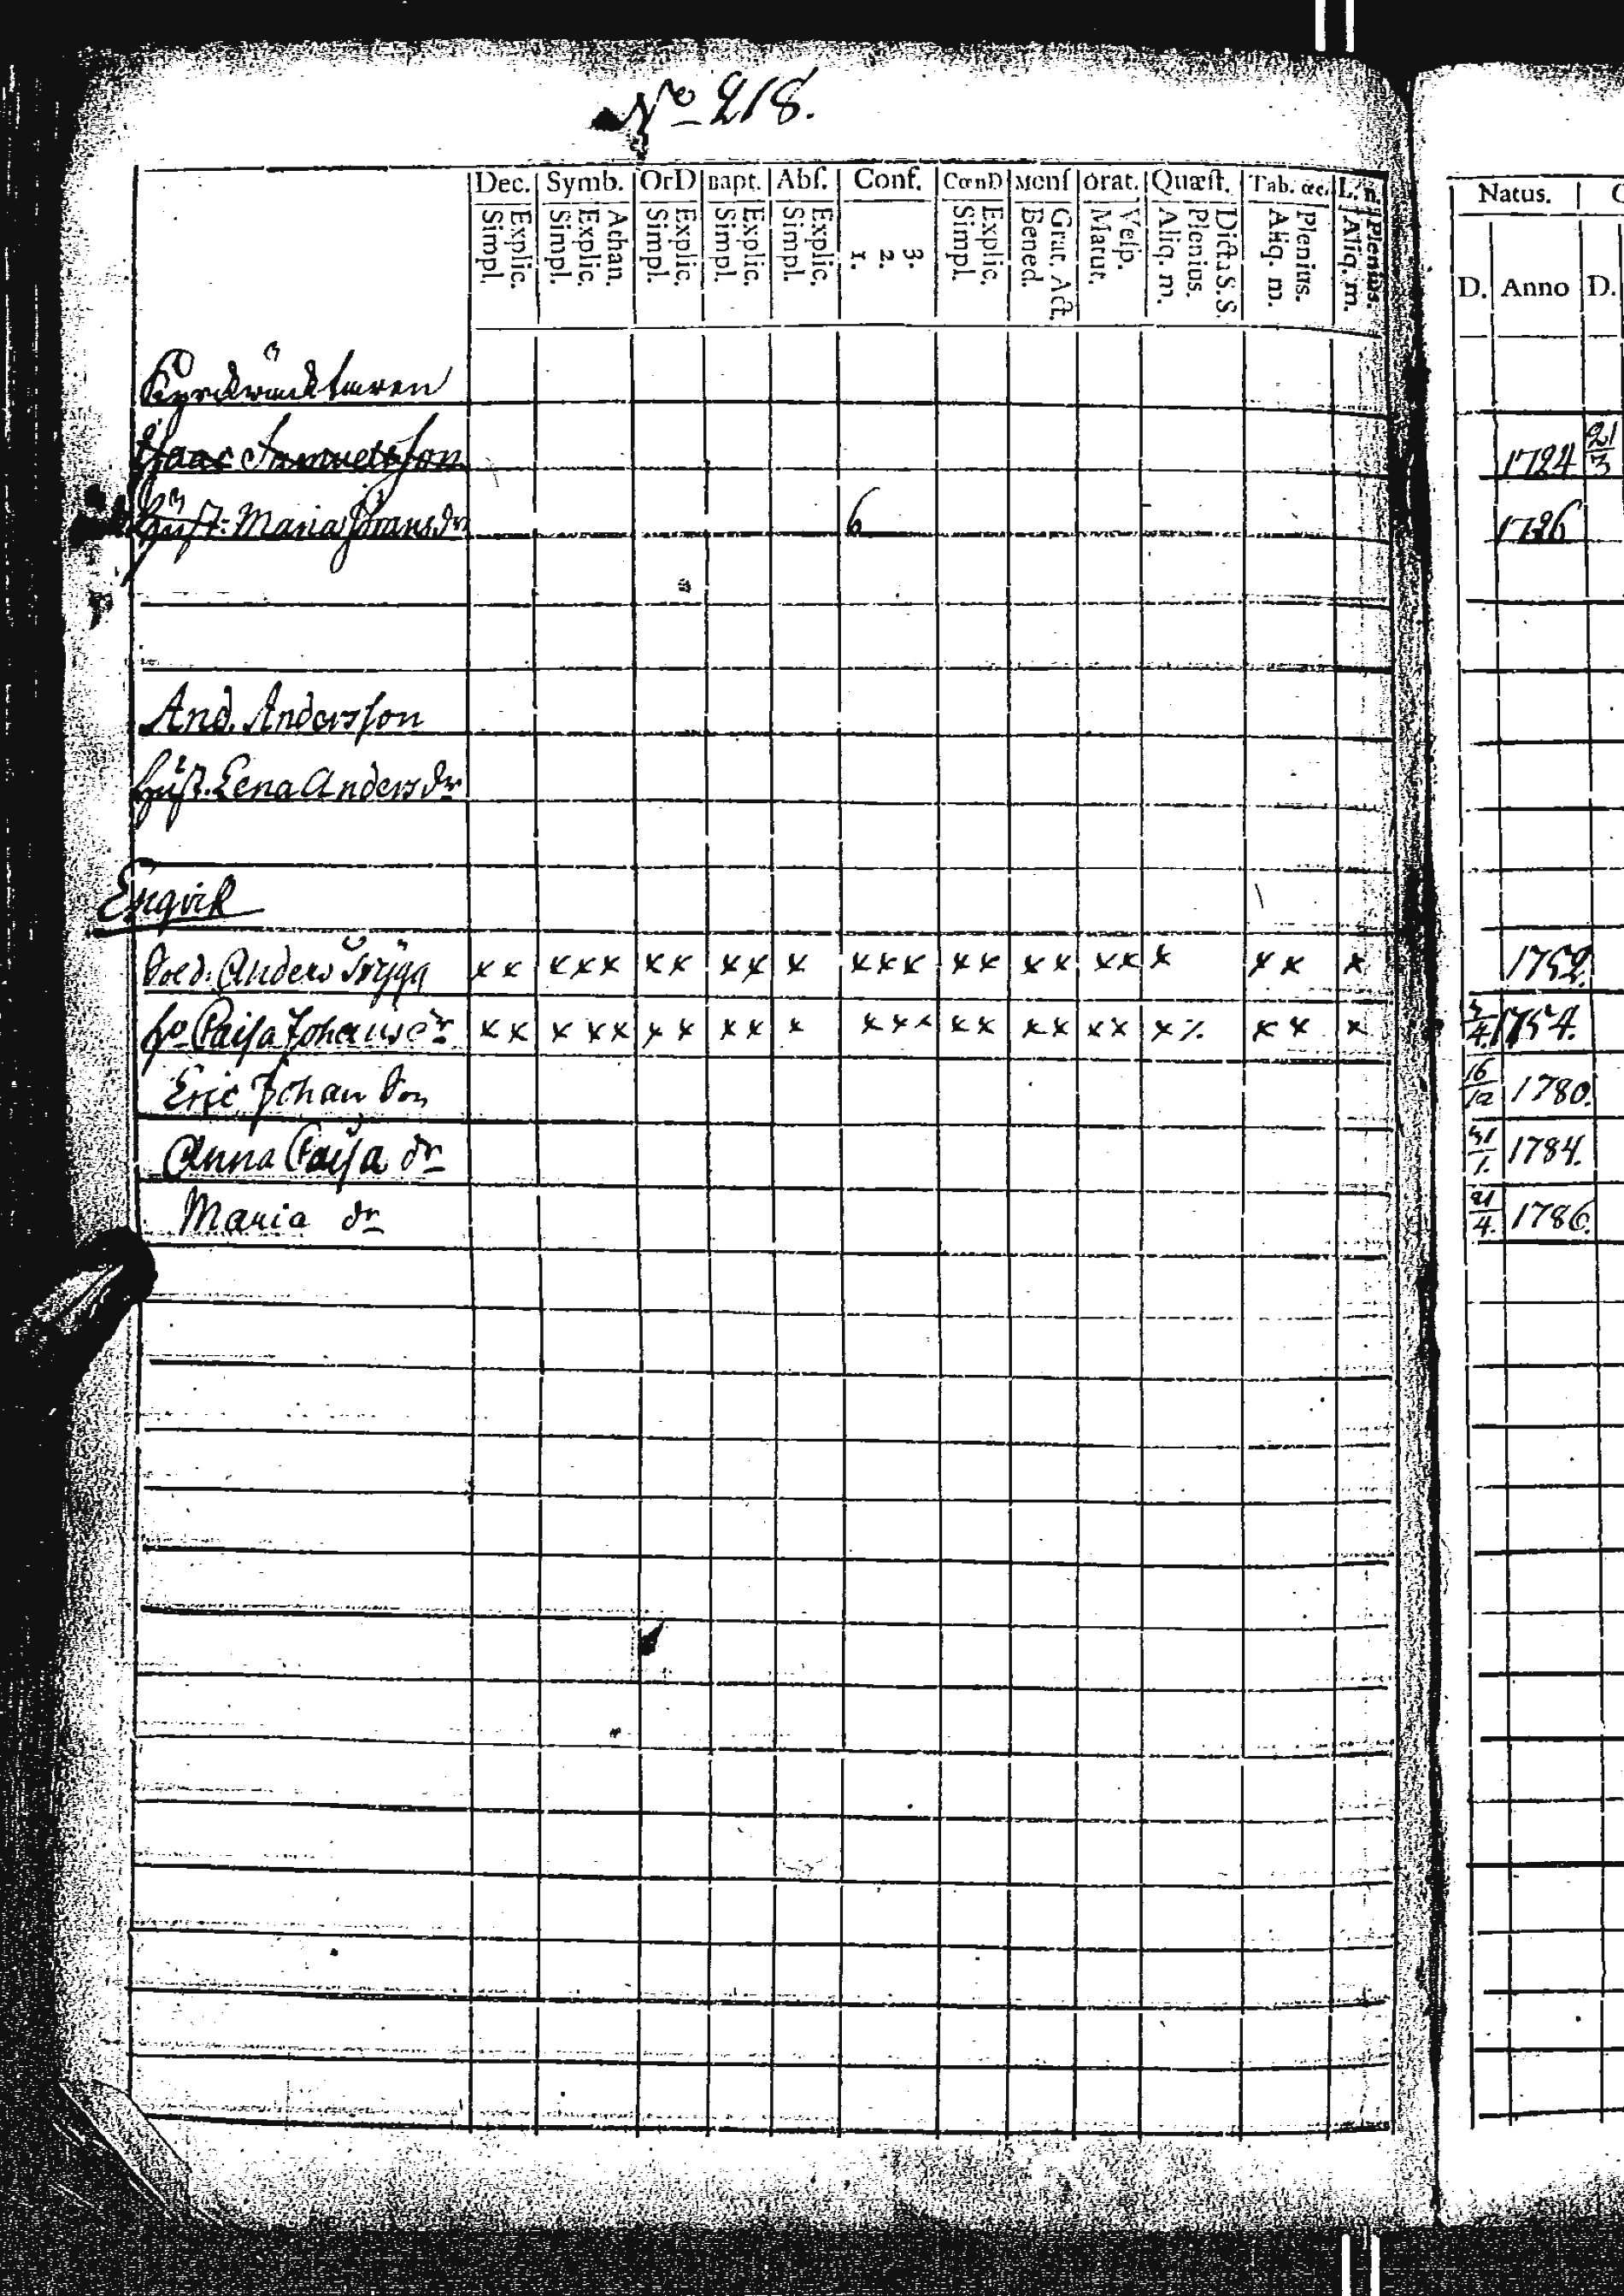 No 218.
Dec. Symb. OrD Bapt. Abſ. Conf. CœnD Menſ Orat. Quæſt. Tab. &c. L. n.
Simpl. Explic. Simpl. Explic. Athan. Simpl. Explic. Simpl. Explic. Simpl. Explic. 1. 2. 3. Simpl. Explic. Bened. Grat. Act. Matut. Veſp. Aliq. m. Plenius. Dicta S. S. Aliq. m. Plenius. Aliq. m. Plenius.
Natus.
D. Anno D.
Kyrckwäcktaren
Isaac Samuelsson 1724 21/3
Hust: Maria Johansdr 6 1726
And. Andersson
Hust. Lena Andersdr
Engvik
Sold. Anders Trygg x x x x x x x x x x x x x x x x x x x x x x x x 1752.
ho Caisa Johansdr x x x x x x x x x x x x x x x x x x x x % x x x 1754.
Eric Johan Son 16/12 1780.
Anna Caisa dr 31/1. 1784.
Maria dr 21/4. 1786.